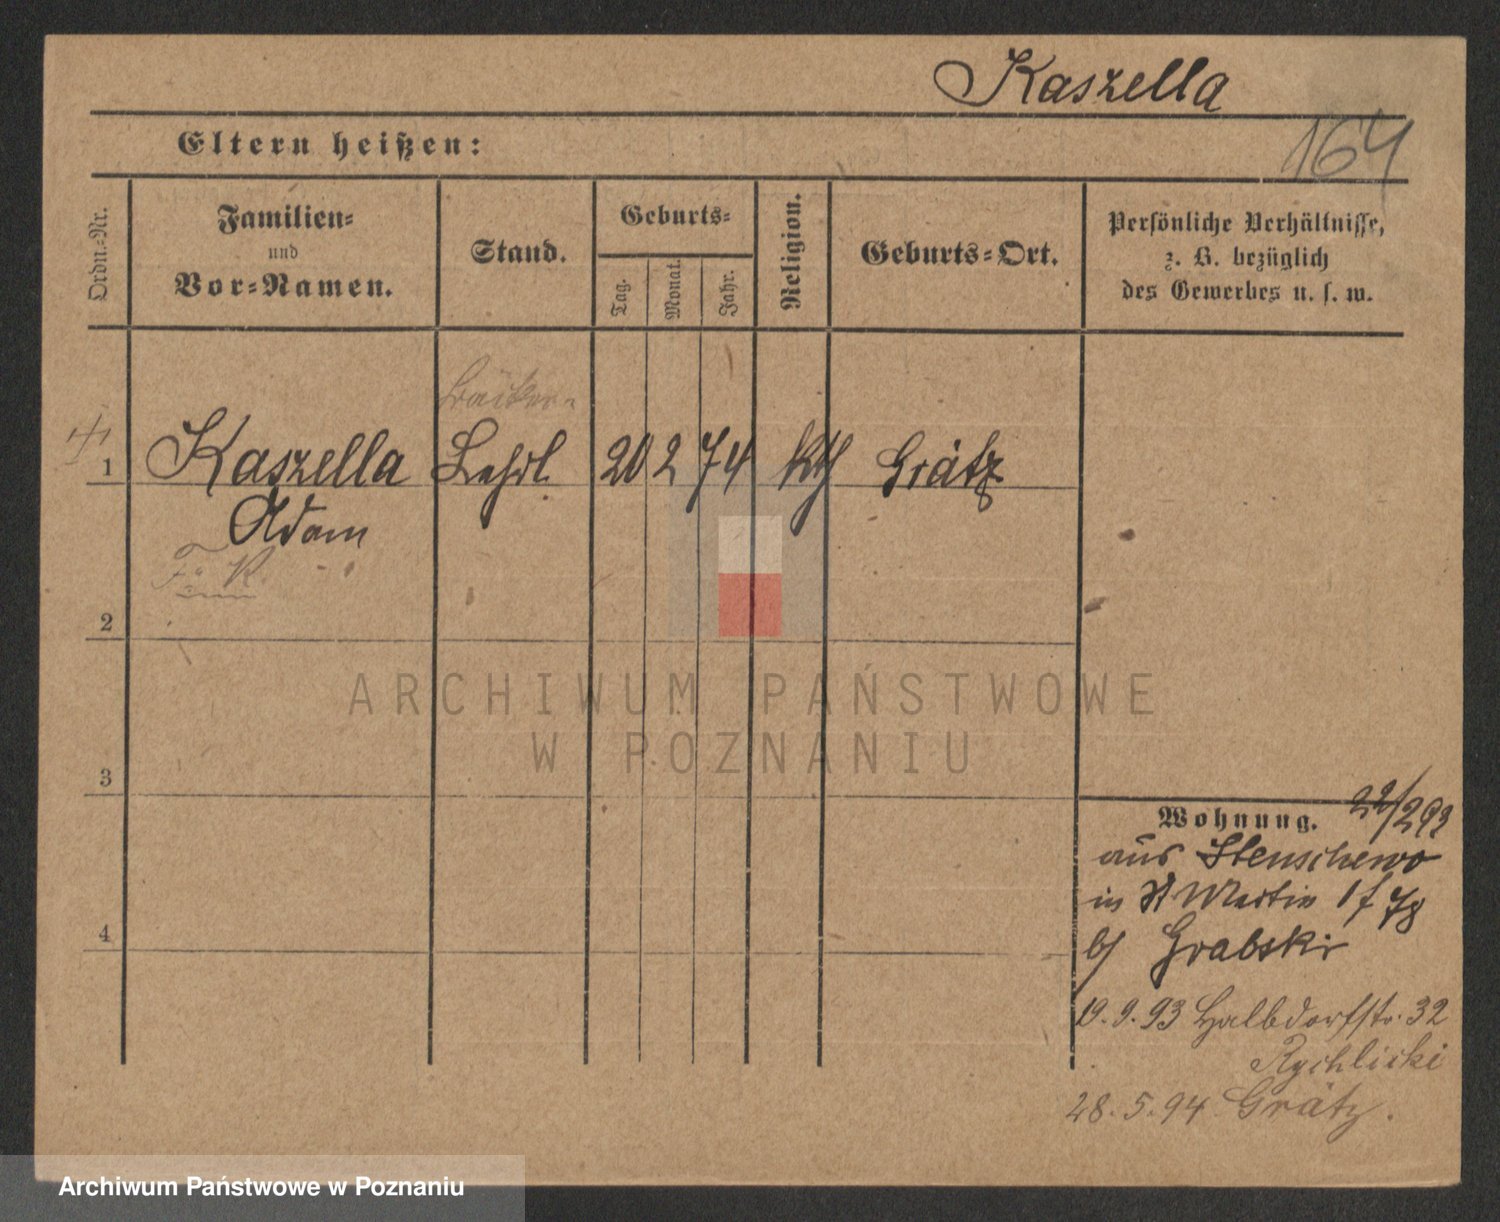 Kaszella
164
Eltern heißen:
Ordn.-Nr.
Familien-
und
Vor-Namen.
Stand.
Geburts-
Tag.
Monat.
Jahr.
Religion.
Geburts-Ort.
Persönliche Verhältnisse,
z. B. bezüglich
des Gewerbes u. s. w.
Bäcker-
1 Kaszella Lehrl. 20 2 74 kth Grätz
Adam
2
ARCHIWUM PAŃSTWOWE
W POZNANIU
3
Wohnung. 22/2 93
aus Stenschewo
in St Martin 78
4
b/ Grabski
19.9.93 Halbdorfstr. 32
Rychlicki
28.5.94 Grätz.
Archiwum Państwowe w Poznaniu